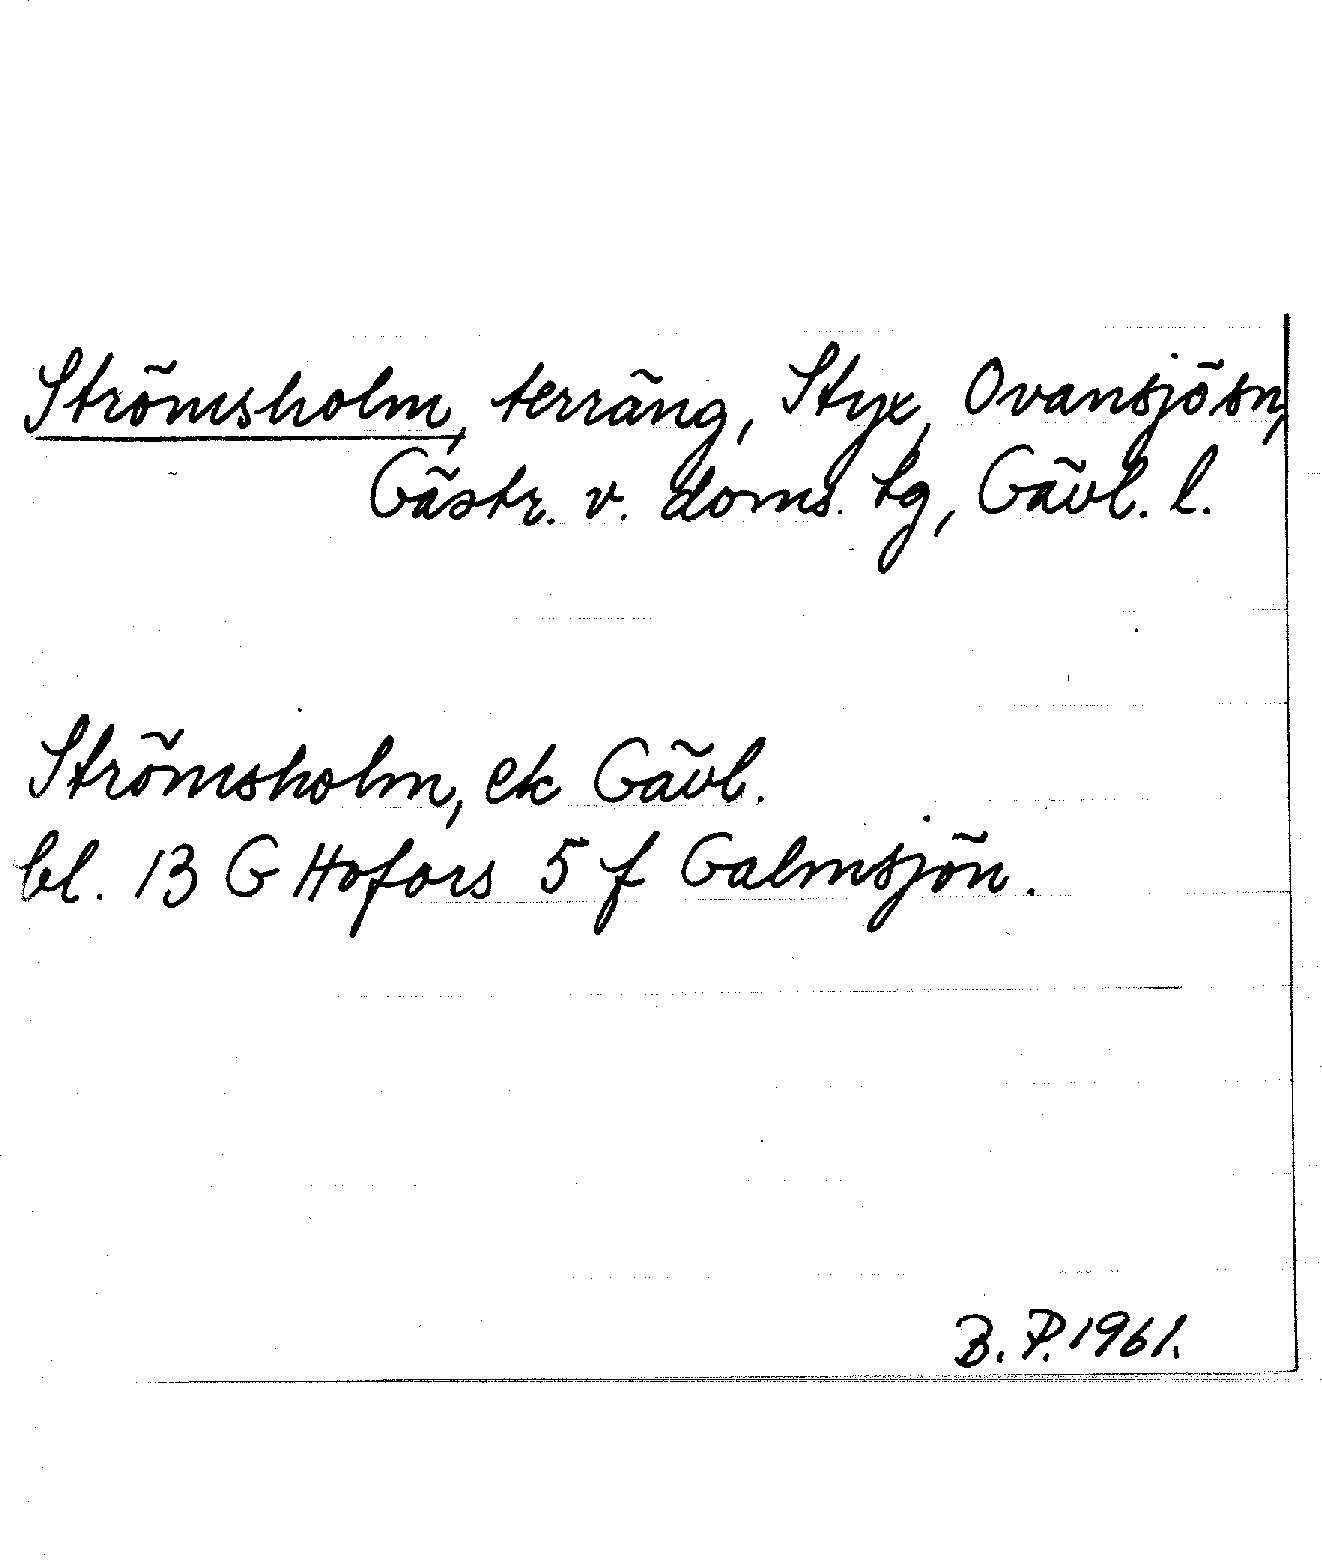 Strömsholm, terräng, Styx, Ovansjö sn,
Gästr. v. doms. tg, Gävl. l.
Strömsholm, ek Gävl.
bl. 13 G Hofors 5 f Galmsjön.
B. P. 1961.